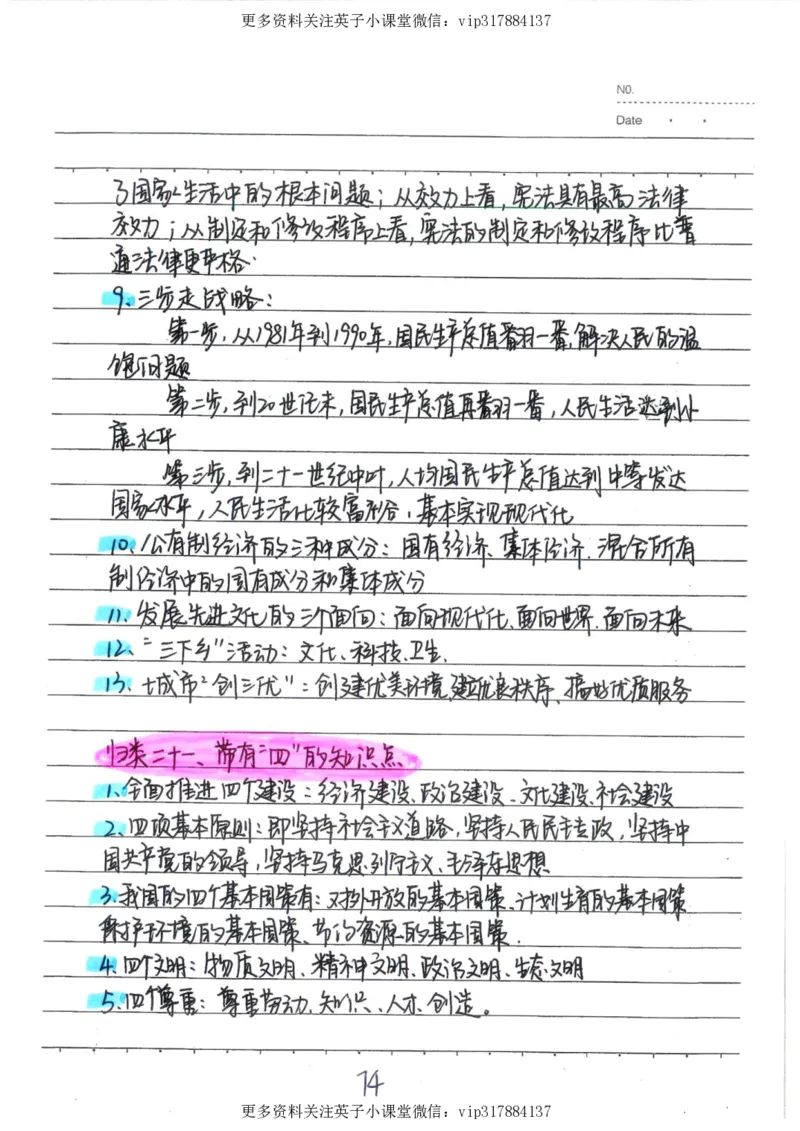 更多资料关注英子小课堂微信：vip317884137
NO.
Date
了国家生活中的根本问题；从效力上看，宪法具有最高法律
效力；从制定和修改程序上看，宪法的制定和修改程序比普
通法律更严格.
9、三步走战略：
第一步，从1981年到1990年，国民生产总值翻一番，解决人民的温
饱问题
第二步，到20世纪末，国民生产总值再翻一番，人民生活达到小
康水平
第三步，到二十一世纪中叶，人均国民生产总值达到中等发达
国家水平，人民生活比较富裕，基本实现现代化
10、公有制经济的三种成分：国有经济、集体经济、混合所有
制经济中的国有成分和集体成分
11、发展先进文化的三个面向：面向现代化、面向世界、面向未来
12、“三下乡”活动：文化、科技、卫生.
13、城市“创三优”：创建优美环境、建立优良秩序、搞好优质服务
归类二十一、带有“四”的知识点
1、全面推进四个建设：经济建设、政治建设、文化建设、社会建设
2、四项基本原则：即坚持社会主义道路，坚持人民民主专政，坚持中
国共产党的领导，坚持马克思列宁主义、毛泽东思想
3、我国的四个基本国策有：对外开放的基本国策、计划生育的基本国策
保护环境的基本国策、节约资源的基本国策.
4、四个文明：物质文明、精神文明、政治文明、生态文明
5、四个尊重：尊重劳动、知识、人才、创造。
74
更多资料关注英子小课堂微信：vip317884137